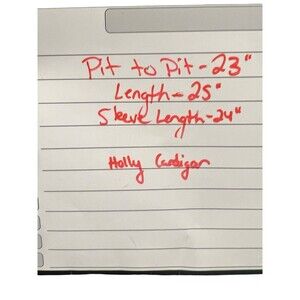 Pit to Pit - 23"
Length - 25"
Sleeve Length - 24"
Holly Cardigan